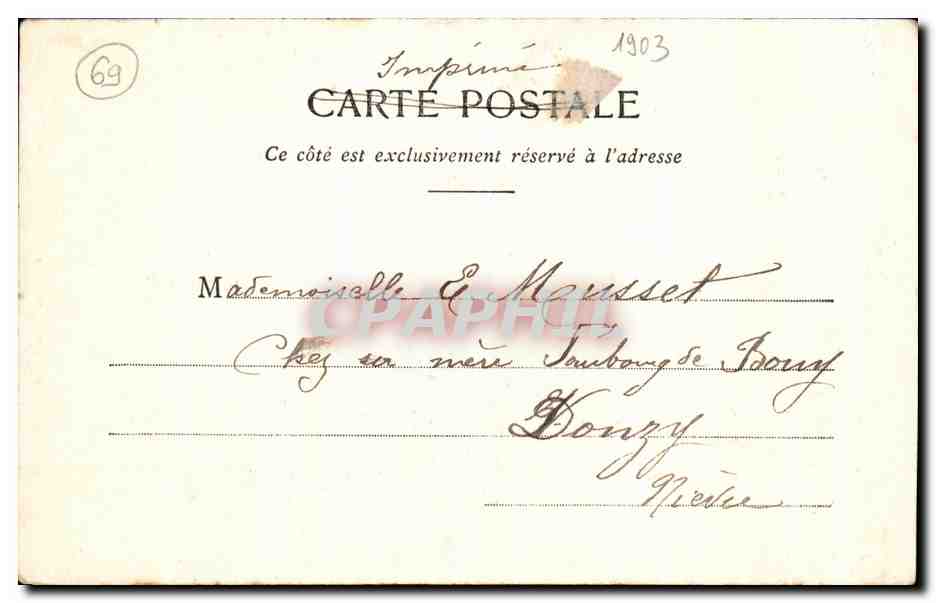 69
1903
Imprimé
CARTE POSTALE
Ce côté est exclusivement réservé à l'adresse
Mademoiselle E. Mousset
CPAPHIL
Chez sa mère Faubourg de Bouy
Donzy
Nièvre